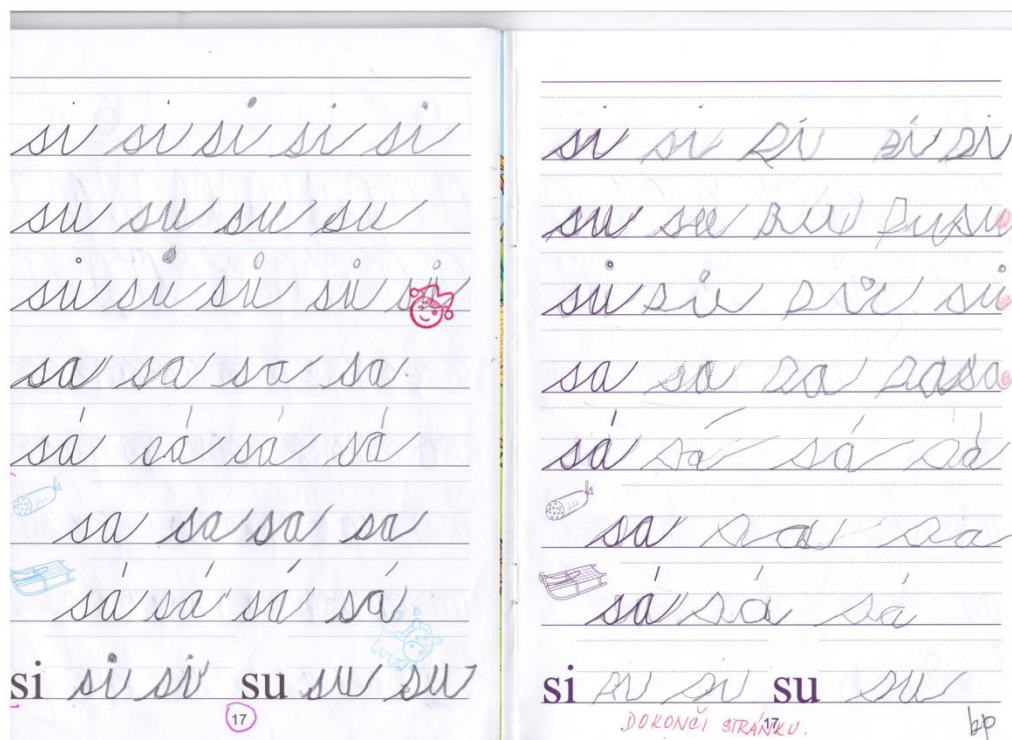 si si si si si
su su su su
sů sů sů sů sů
sa sa sa sa
sá sá sá sá
sa sa sa sa
sá sá sá sá
si si si su su su
17
si si si si si
su su su su su
sů sů sů sů
sa sa sa sa sa
sá sá sá sá
sa sa sa
sá sá sá
si si si su su
DOKONČI STRÁNKU.
17
bp